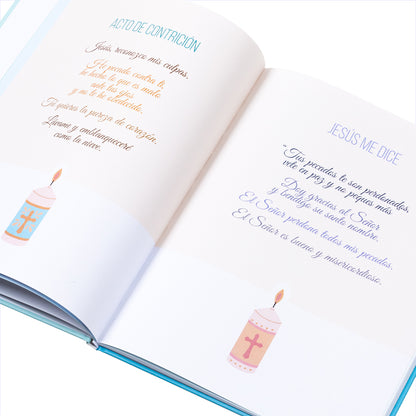 ACTO DE CONTRICIÓN
Jesús, reconozco mis culpas.
He pecado contra ti,
he hecho lo que es malo
ante tus ojos
y no te he obedecido.
Tú quieres la pureza de corazón.
Lávame y emblanqueceré
como la nieve.
JESÚS ME DICE
"Tus pecados te son perdonados,
vete en paz y no peques más
Doy gracias al Señor
y bendigo su santo nombre.
El Señor perdona todos mis pecados.
El Señor es bueno y misericordioso.